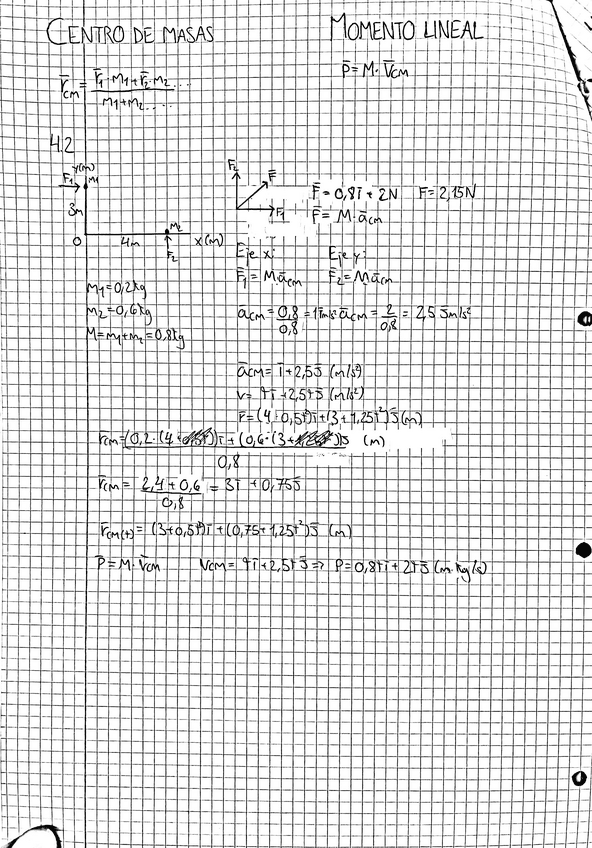 CENTRO DE MASAS
MOMENTO LINEAL
r̅cm = r̅1·m1+r̅2·m2.... / m1+m2.....
P̅=M·V̅cm
4.2
y(m)
F1 M1
3m
0 4m x(m)
M2
F2
F2 F̅ F1
F̅=0,8i̅+2N F=2,15N
F̅=M·a̅cm
Eje x: Eje y:
F̅1=M·a̅cm F̅2=M·a̅cm
m1=0,2kg
m2=0,6kg
M=m1+m2=0,8kg
a̅cm=0,8/0,8=1i̅m/s² a̅cm=2/0,8=2,5j̅m/s²
a̅cm=i̅+2,5j̅ (m/s²)
v=ti̅+2,5tj̅ (m/s²)
r̅=(4+0,5t²)i̅+(3+1,25t²)j̅(m)
r̅cm=(0,2·(4+ )i̅+(0,6·(3+ )j̅ / 0,8 (m)
r̅cm= 2,4+0,6 / 0,8 = 3i̅+0,75j̅
r̅cm(t)=(3+0,5t²)i̅+(0,75+1,25t²)j̅ (m)
P̅=M·V̅cm Vcm=ti̅+2,5tj̅⇒ P=0,8ti̅+2tj̅(m·kg/s)